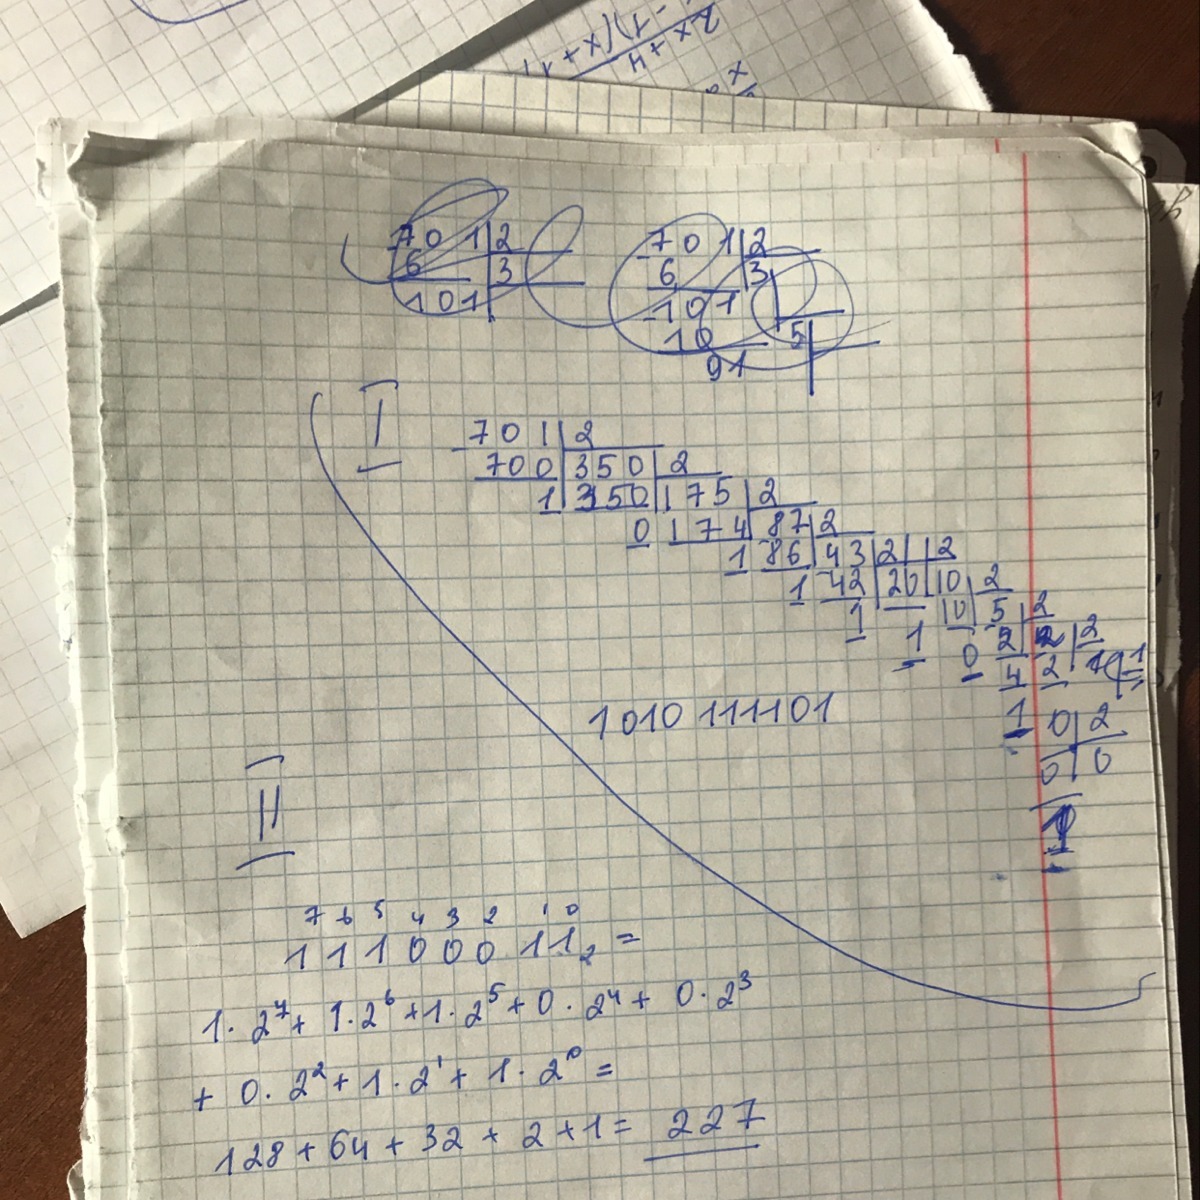 2x+4
701 2
6 3
101
701 2
6 3
101
10 5
91
I
701 2
700 350 2
1 350 175 2
0 174 87 2
1 86 43 2 2
1 42 20 10 2
1 10 5 2
1 0 2 2
4 2
1 0 2
0 0
1010 111101
II
7 6 5 4 3 2 1 0
1 1 1 0 0 0 1 1₂ =
1·2⁷+ 1·2⁶+1·2⁵+0·2⁴+ 0·2³
+ 0·2²+1·2¹+ 1·2⁰=
128+64+32+2+1= 227